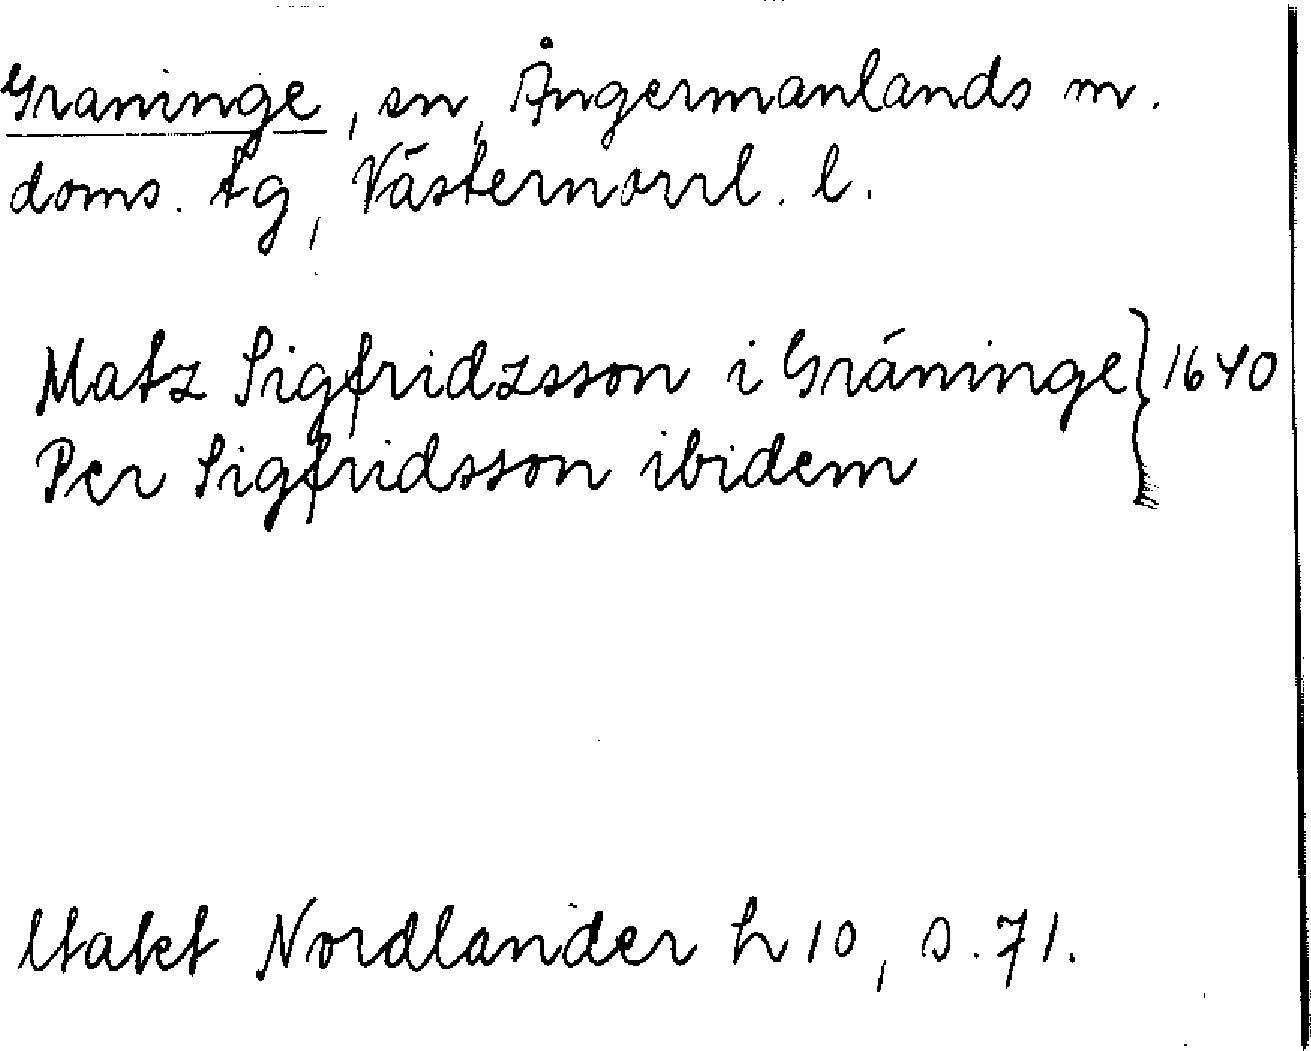 Graninge, sn, Ångermanlands m.
doms. tg, Västernorrl. l.
Matz Sigfridzsson i Gråninge } 1640
Per Sigfridsson ibidem
Nordlander h 10, s. 71.